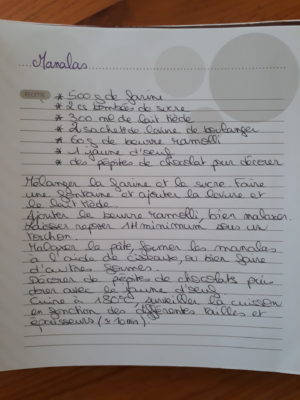 Manalas
RECETTE
* 500 g de farine
* 2 cs bombées de sucre
* 300 ml de lait tiède
* 2 sachets de levure de boulanger
* 60 g de beurre ramolli
* 1 jaune d'oeuf
* des pépites de chocolat pour décorer
Mélanger la farine et le sucre. Faire
une fontaine et ajouter la levure et
le lait tiède.
Ajouter le beurre ramolli, bien malaxer.
Laisser reposer 1H minimum sous un
torchon.
Malaxer la pâte, former les manalas
à l'aide de ciseaux, ou bien faire
d'autres formes.
Décorer de pépites de chocolats puis
dorer avec le jaune d'oeuf.
Cuire à 180°C, surveiller la cuisson
en fonction des différentes tailles et
épaisseurs (± 10min).